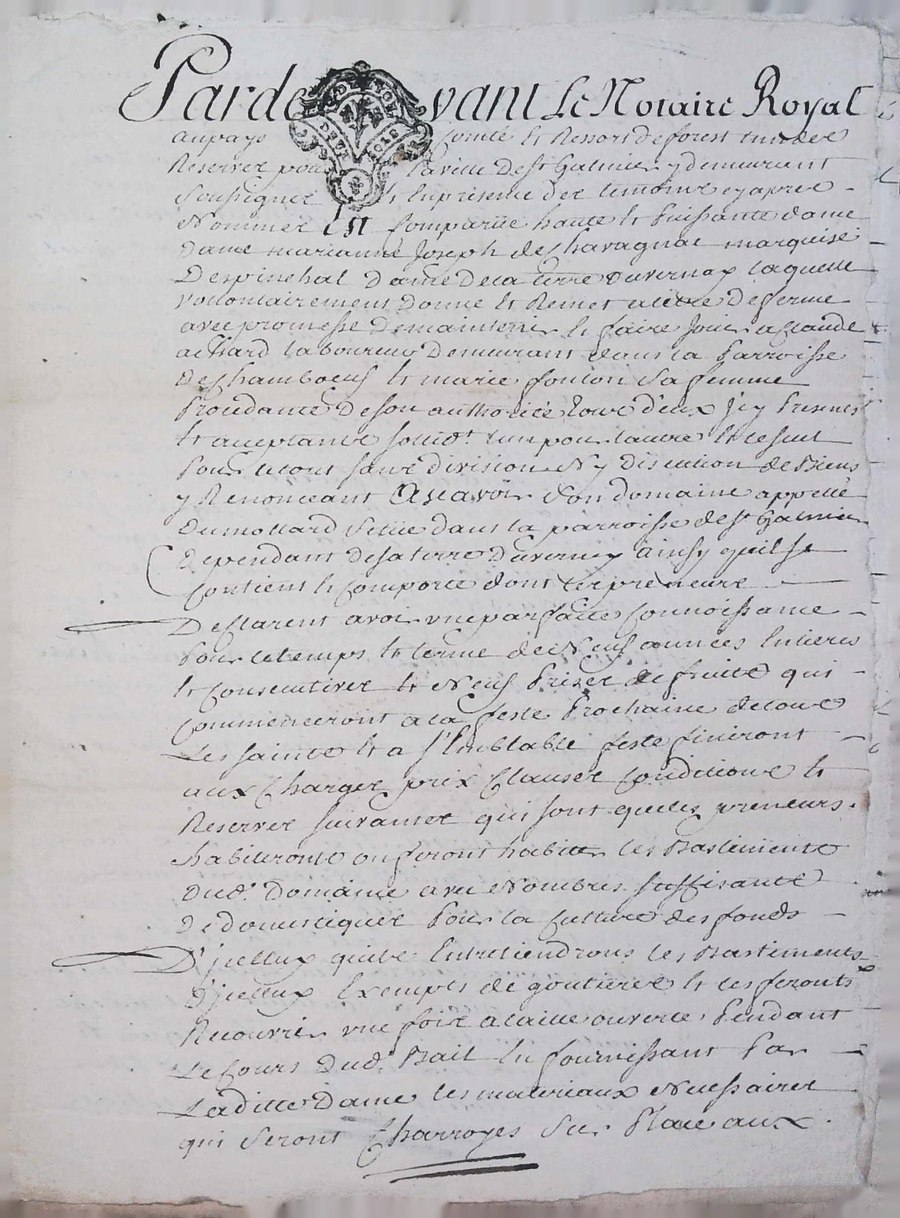 Pardevant Le Notaire Royal
au pays Comté et Ressort de forest
Reservez pour la ville de St Galmier y demeurant
soussigner et En presence des temoins cy apres
Nommez Est Compariüe haute et Puissante dame
Dame marianne Joseph de Chavagnac marquise
Despinchal Dame de la terre Duvernay laquelle
vollontairement donne et Remet a titre de ferme
avec promesse de maintenir et faire Jouir a Claude
achard laboureur Demeurant dans la Parroisse
De Chambœuf et marie sa femme
Procedante de son authorité tous d'eux Jcy Presents
et acceptants sollidt lun pour lautre et le seul
Pour le tout sans division Ny Discution de Biens
y Renonceant Ascavoir Son domaine appellé
Dumollard Scitüe dans la parroisse de St Galmier
Dependant de sa terre Duverney ainsy quil se
Contient et Comporte dont les preneurs
Desclarent avoir vne parfaite Connoissance
Pour le temps et terme de Neuf années Entieres
et Consecutives et Neuf Prises de fruits qui
Commenceront a la feste Prochaine de tous
Les saints et a semblable feste finiront
aux Charges prix Clauses Conditions et
Reserves suivantes qui sont que les preneurs
habiteront ou feront habiter les Bastiments
Dudt Domaine avec Nombres suffisants
De domestiques Pour la Culture des fonds
D'jcelluy quils Entretiendrons les Bastiments
D'jcelluy Exempts de goutieres et les feronts
Recouvrir vne fois a taille ouverte Pendant
Le Cours dudt Bail En fournissant Par
Laditte Dame les materiaux Necessaires
qui seront Charroyés Sur Place aux